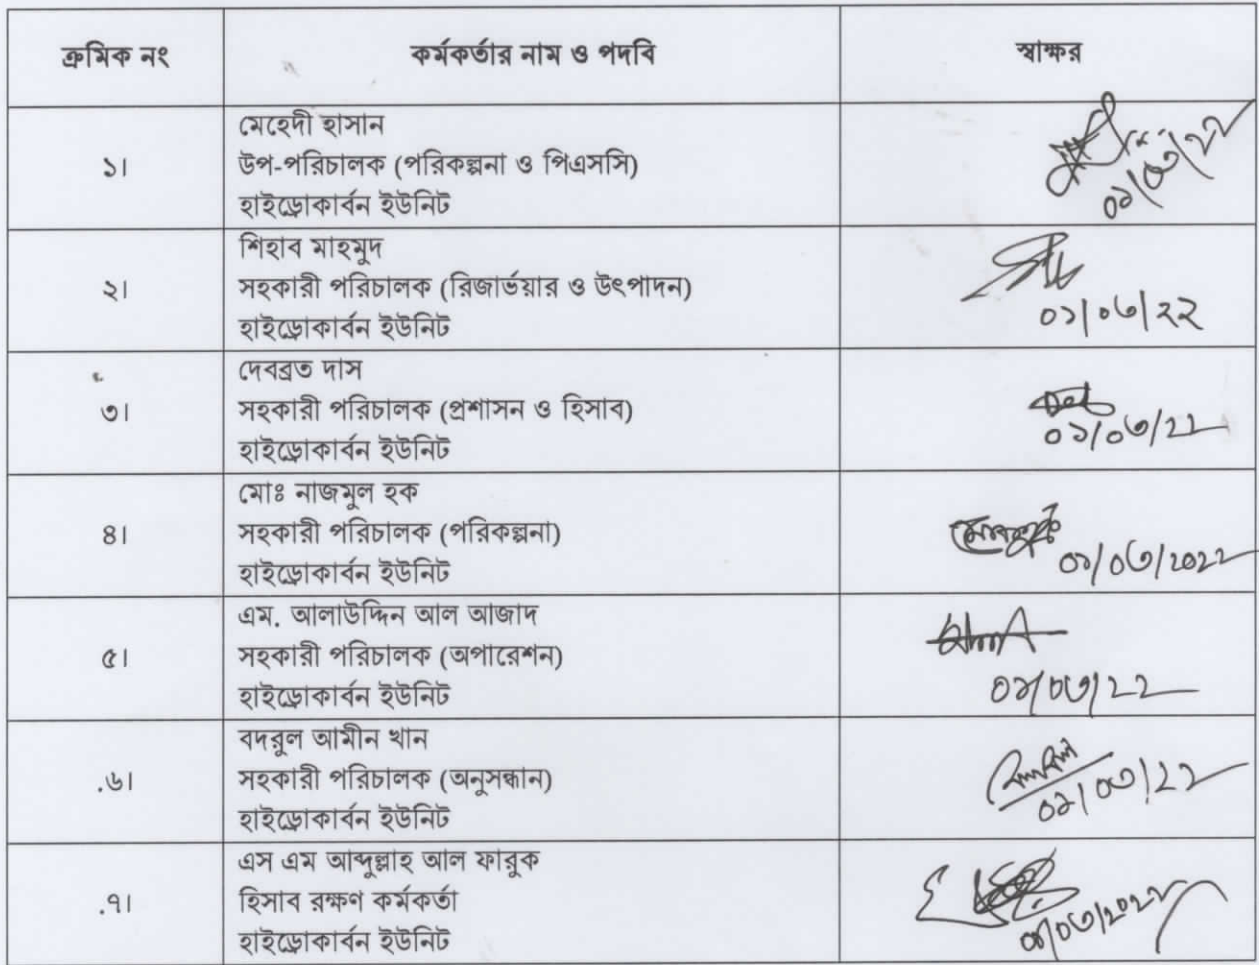 ক্রমিক নং কর্মকর্তার নাম ও পদবি স্বাক্ষর
মেহেদী হাসান
১। উপ-পরিচালক (পরিকল্পনা ও পিএসসি)
হাইড্রোকার্বন ইউনিট
০১/০৩/২২
শিহাব মাহমুদ
২। সহকারী পরিচালক (রিজার্ভয়ার ও উৎপাদন)
হাইড্রোকার্বন ইউনিট ০১/০৩/২২
দেবব্রত দাস
৩। সহকারী পরিচালক (প্রশাসন ও হিসাব)
হাইড্রোকার্বন ইউনিট ০১/০৩/22
মোঃ নাজমুল হক
৪। সহকারী পরিচালক (পরিকল্পনা)
হাইড্রোকার্বন ইউনিট ০১/০৩/2022
এম. আলাউদ্দিন আল আজাদ
৫। সহকারী পরিচালক (অপারেশন)
হাইড্রোকার্বন ইউনিট ০১/০৩/22
বদরুল আমীন খান
.৬। সহকারী পরিচালক (অনুসন্ধান)
হাইড্রোকার্বন ইউনিট ০১/০৩/22
এস এম আব্দুল্লাহ আল ফারুক
.৭। হিসাব রক্ষণ কর্মকর্তা
হাইড্রোকার্বন ইউনিট ০১/০৩/2022